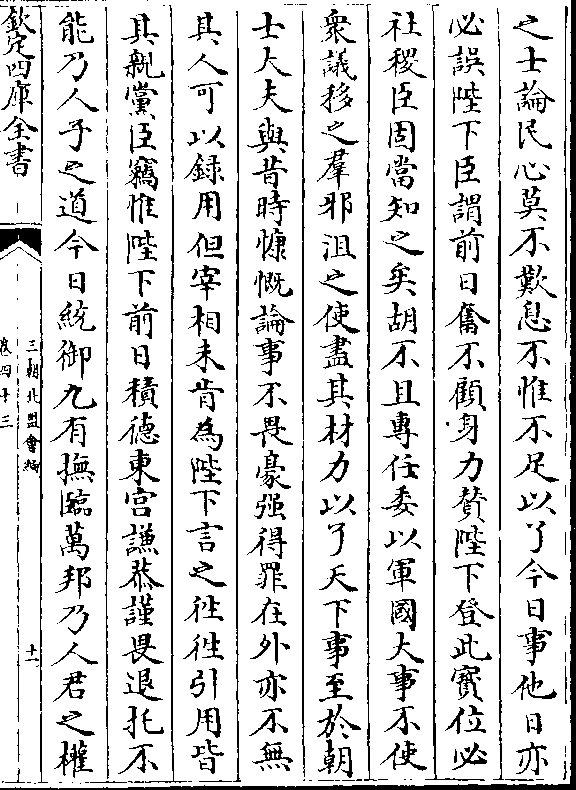 之士論民心莫不歎息不惟不足以了今日事他日亦
必誤陛下臣謂前日奮不顧身力贊陛下登此寳位必
社稷臣固當知之矣胡不且專任委以軍國大事不使
衆議移之羣邪沮之使盡其材力以了天下事至於朝
士大夫與昔時慷慨論事不畏豪强得罪在外亦不無
其人可以録用但宰相未肯為陛下言之徃徃引用皆
其親黨臣竊惟陛下前日積德東宫謙恭謹畏退托不
能乃人子之道今日統御九有撫臨萬邦乃人君之權
欽定四庫全書
三朝北盟會編
卷四十三
十一